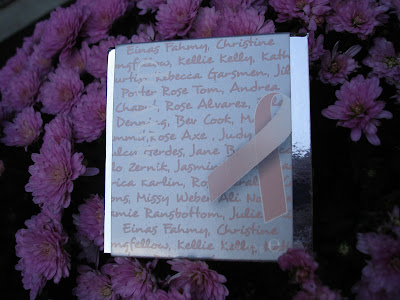 Einas Fahmy, Christine
ngfellow, Kellie Kelly, Kath
urtin, Rebecca Garsmen, Jil
Porter Rose Tom, Andrea
Rose Alvarez,
Denning, Bev Cook, M
Rose Axe, Judy
erdes, Jane B
lo Zernik, Jasmin
rica Karlin, Ro
ons, Missy Weber Ali No
amie Ransbottom, Julie
Einas Fahmy, Christine
ngfellow, Kellie Kelly, Kath